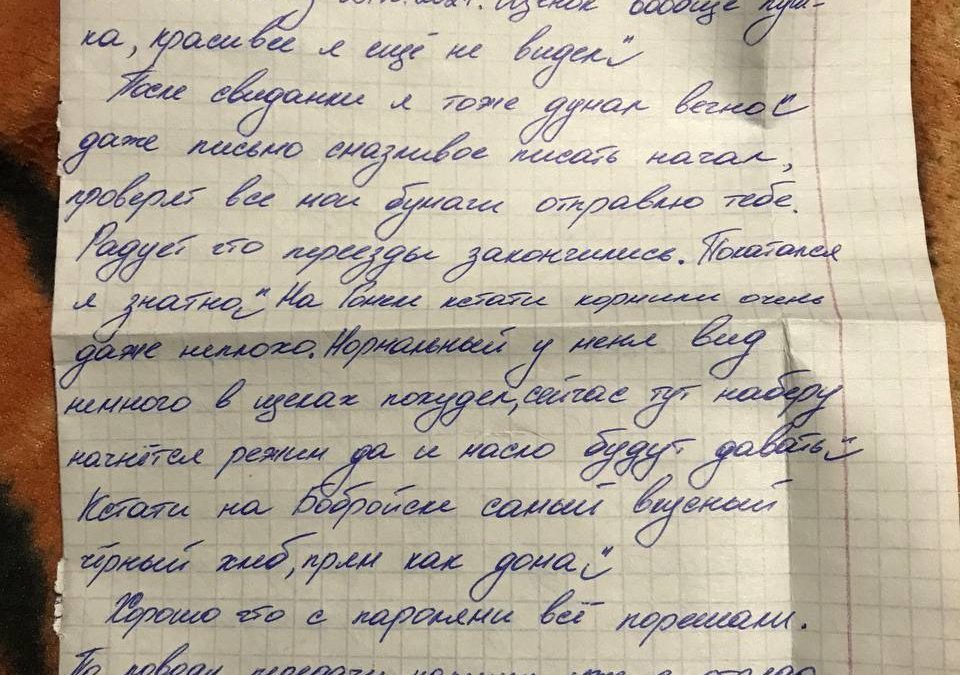 2021. Щенок вообще пуш-
ка, красивее я ещё не видел
После свиданки я тоже думал вечно
даже письмо смазливое писать начал,
проверят все мои бумаги отправлю тебе.
Радует что переезды закончились. Покатался
я знатно На Гомеле кстати кормили очень
даже неплохо. Нормальный у меня вид
немного в щеках похудел, сейчас тут наберу
начнётся режим да и масло будут давать
Кстати на Бобруйске самый вкусный
чёрный хлеб, прям как дома
Хорошо что с паролями всё порешали.
По поводу передачи